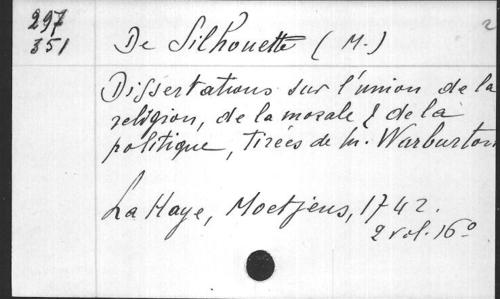 297
351
2
De Silhouette (M.)
Dissertations sur l'union de la
religion, de la morale & de la
politique, tirées de M. Warburton
La Haye, Moetjens, 1742.
2 vol. 16º